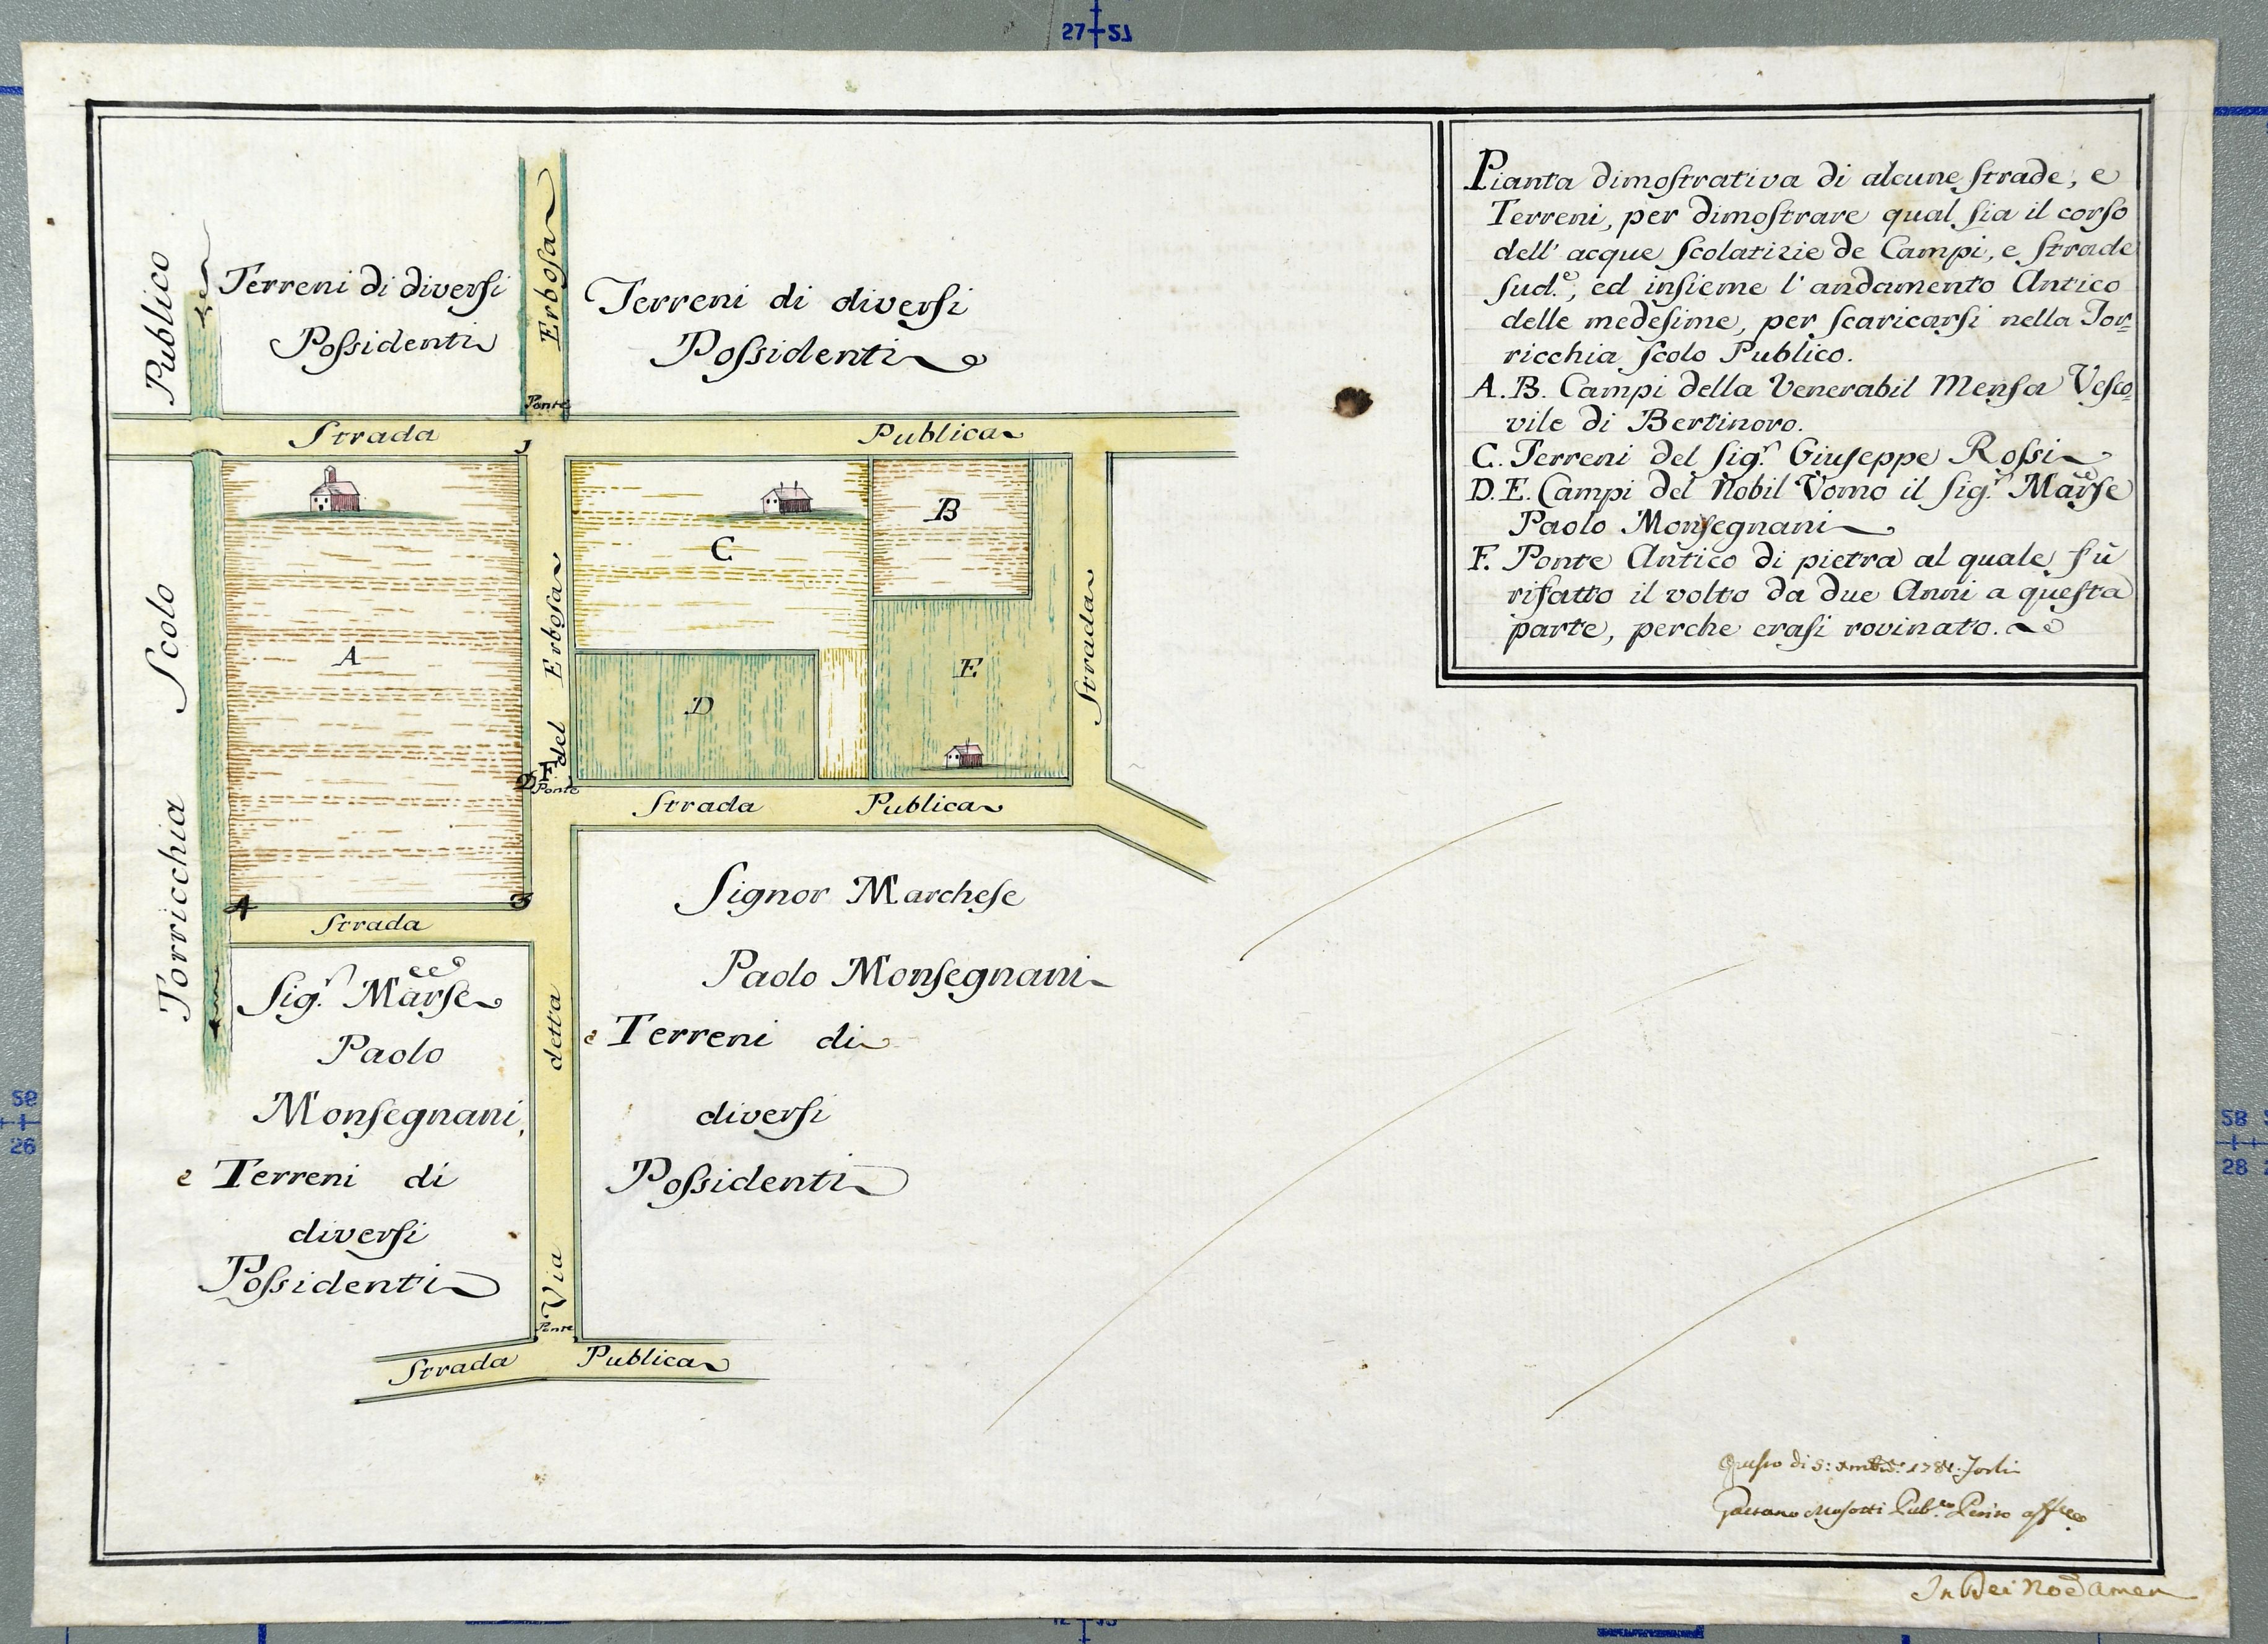 Pianta dimoſtrativa di alcune ſtrade, e
Terreni, per dimoſtrare qual ſia il corſo
dell' acque ſcolatizie de Campi, e ſtrade
ſud.e, ed inſieme l' andamento Antico
delle medeſime, per ſcaricarſi nella Tor=
ricchia ſcolo Publico.
A. B. Campi della Venerabil Menſa Veſco=
vile di Bertinoro.
C. Terreni del ſig.r Giuſeppe Roſsi
D. E. Campi del Nobil Vomo il ſig.r Marſe
Paolo Monſegnani
F. Ponte Antico di pietra al quale fù
rifatto il volto da due Anni a queſta
parte, perche eraſi rovinato.
Torricchia Scolo Publico
Terreni di diverſi
Poſsidenti
Erboſa
Terreni di diverſi
Poſsidenti
Ponte
Strada Publica
1
A
B
C
D
E
Strada
Via detta del Erboſa
2
F
Ponte
Strada Publica
4
3
Strada
Signor Marcheſe
Paolo Monſegnani
e Terreni di
diverſi
Poſsidenti
Sig.r Marſe
Paolo
Monſegnani,
e Terreni di
diverſi
Poſsidenti
Ponte
Strada Publica
Queſto di 5:
Gaetano Pub.co Perito
In Dei Noē Amen
27 27
58
26
58
28